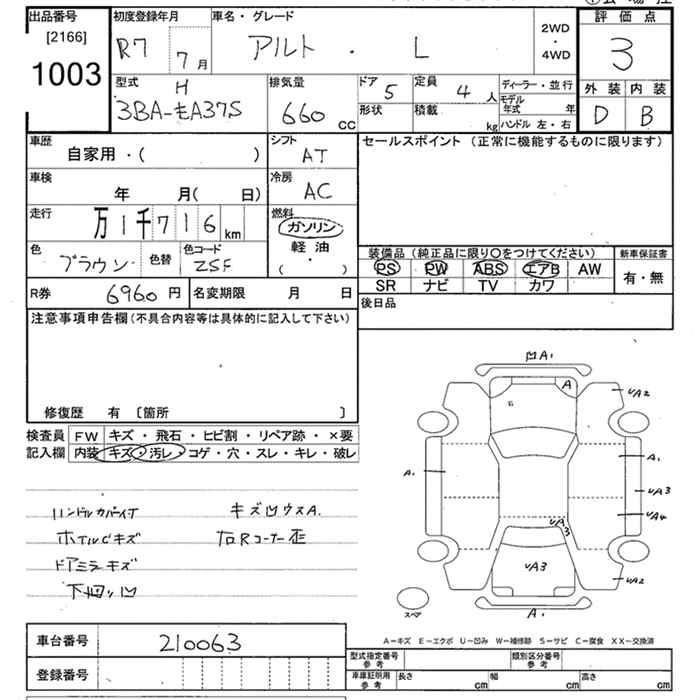 出品番号
[2166]
1003
初度登録年月
R7 7月
車名・グレード
アルト・L
2WD
・
4WD
評価点
3
外装 内装
D B
型式
H
3BA-HA37S
排気量
660 CC
ドア 5
定員 4 人
形状
積載 kg
ディーラー・並行
モデル
年式 年
ハンドル 左・右
車歴
自家用・( )
シフト
AT
セールスポイント (正常に機能するものに限ります)
車検
年 月( 日)
冷房
AC
走行
万1千716 km
燃料
ガソリン
軽油
( ・ )
色
ブラウン
色替
色コード
ZSF
装備品 (純正品に限り〇をつけてください)
PS PW ABS エアB AW
SR ナビ TV カワ
新車保証書
有・無
R券 6960 円
名変期限 月 日
後日品
注意事項申告欄(不具合内容等は具体的に記入して下さい)
修復歴 有 〔箇所 〕
検査員
記入欄
FW キズ・飛石・ヒビ割・リペア跡・×要
内装 キズ・汚レ・コゲ・穴・スレ・キレ・破レ
キズ凹ウスA.
ホイルCキズ 右Rコーナー歪
ドアミラーキズ
下廻り凹
凹A1
A
UA2
A1
A1
UA3
UA4
UA3
UA3
UA2
A1
スペア
A−キズ E−エクボ U−凹み W−補修跡 S−サビ C−腐食 XX−交換済
車台番号 210063
登録番号
型式指定番号
参考
類別区分番号
参考
車庫証明用
参考
長さ cm
幅 cm
高さ cm